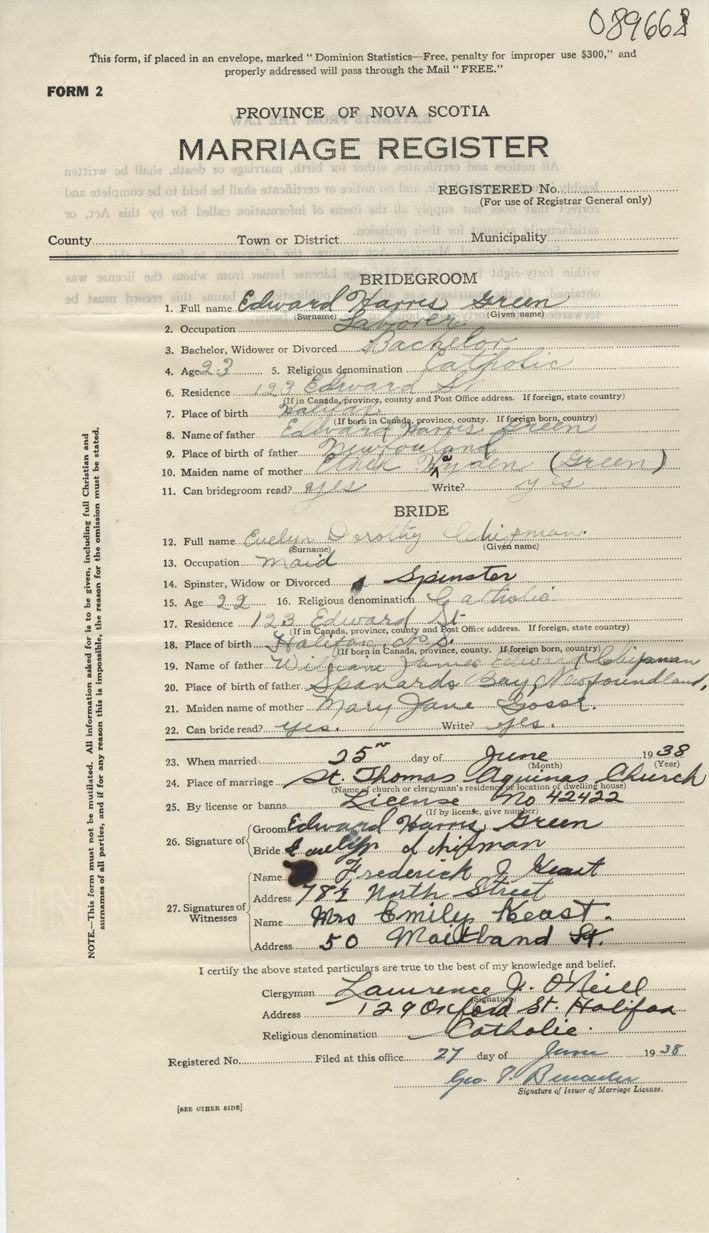 089668
This form, if placed in an envelope, marked "Dominion Statistics—Free, penalty for improper use $300," and
properly addressed will pass through the Mail "FREE."
FORM 2
PROVINCE OF NOVA SCOTIA
MARRIAGE REGISTER
REGISTERED No.
(For use of Registrar General only)
County Town or District Municipality
BRIDEGROOM
1. Full name Edward Harris Green
(Surname) (Given name)
2. Occupation Laborer
3. Bachelor, Widower or Divorced Bachelor
4. Age 23 5. Religious denomination Catholic
6. Residence 123 Edward St
(If in Canada, province, county and Post Office address. If foreign, state country)
7. Place of birth Halifax
(If born in Canada, province, county. If foreign born, country)
8. Name of father Edward Harris Green
9. Place of father's birth
10. Maiden name of mother (Green)
11. Can bridegroom read? yes Write? yes
BRIDE
12. Full name Evelyn Dorothy Chipman.
(Surname) (Given name)
13. Occupation Maid
14. Spinster, Widow or Divorced Spinster
15. Age 22 16. Religious denomination Catholic
17. Residence 123 Edward St
(If in Canada, province, county and Post Office address. If foreign, state country)
18. Place of birth Halifax N.S.
(If born in Canada, province, county. If foreign born, country)
19. Name of father William James Edward Chipman
20. Place of birth of father Spanards Bay, Newfoundland,
21. Maiden name of mother Mary Jane Gosse.
22. Can bride read? yes. Write? yes.
23. When married 25th day of June 1938
(Month) (Year)
24. Place of marriage St. Thomas Aquinas Church
(Name of church or clergyman's residence or location of dwelling house)
25. By license or banns License No 42422
(If by license, give number)
26. Signature of Groom Edward Harris Green
Bride Evelyn d chipman
27. Signatures of Witnesses Name Frederick J Keast
Address 78½ North Street
Name Mrs Emily Keast.
Address 50 Maitland St.
I certify the above stated particulars are true to the best of my knowledge and belief.
Clergyman Lawrence J. O'Neill
(Signature)
Address 129 Oxford St. Halifax
Religious denomination Catholic.
Registered No. Filed at this office 27 day of June 1938
Geo. P.
Signature of Issuer of Marriage License.
[SEE OTHER SIDE]
NOTE.—This form must not be mutilated. All information asked for is to be given, including full Christian and
surnames of all parties, and if for any reason this is impossible, the reason for the omission must be stated.